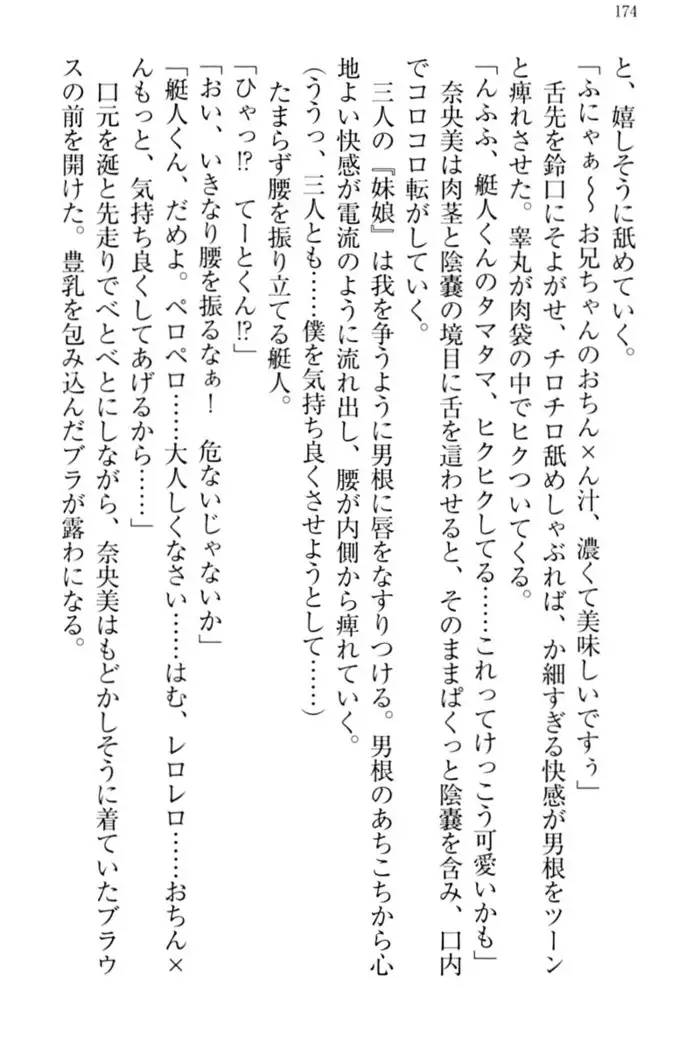 174
と、嬉しそうに舐めていく。
「ふにゃぁ〜〜お兄ちゃんのおちん×ん汁、濃くて美味しいですぅ」
舌先を鈴口にそよがせ、チロチロ舐めしゃぶれば、か細すぎる快感が男根をツーン
と痺れさせた。睾丸が肉袋の中でヒクついてくる。
「んふふ、艇人くんのタマタマ、ヒクヒクしてる……これってけっこう可愛いかも」
奈央美は肉茎と陰嚢の境目に舌を這わせると、そのままぱくっと陰嚢を含み、口内
でコロコロ転がしていく。
三人の『妹娘』は我を争うように男根に唇をなすりつける。男根のあちこちから心
地よい快感が電流のように流れ出し、腰が内側から痺れていく。
(ううっ、三人とも……僕を気持ち良くさせようとして……)
たまらず腰を振り立てる艇人。
「ひゃっ!? てーとくん!?」
「おい、いきなり腰を振るなぁ! 危ないじゃないか」
「艇人くん、だめよ。ペロペロ……大人しくなさい……はむ、レロレロ……おちん×
んもっと、気持ち良くしてあげるから……」
口元を涎と先走りでべとべとにしながら、奈央美はもどかしそうに着ていたブラウ
スの前を開けた。豊乳を包み込んだブラが露わになる。